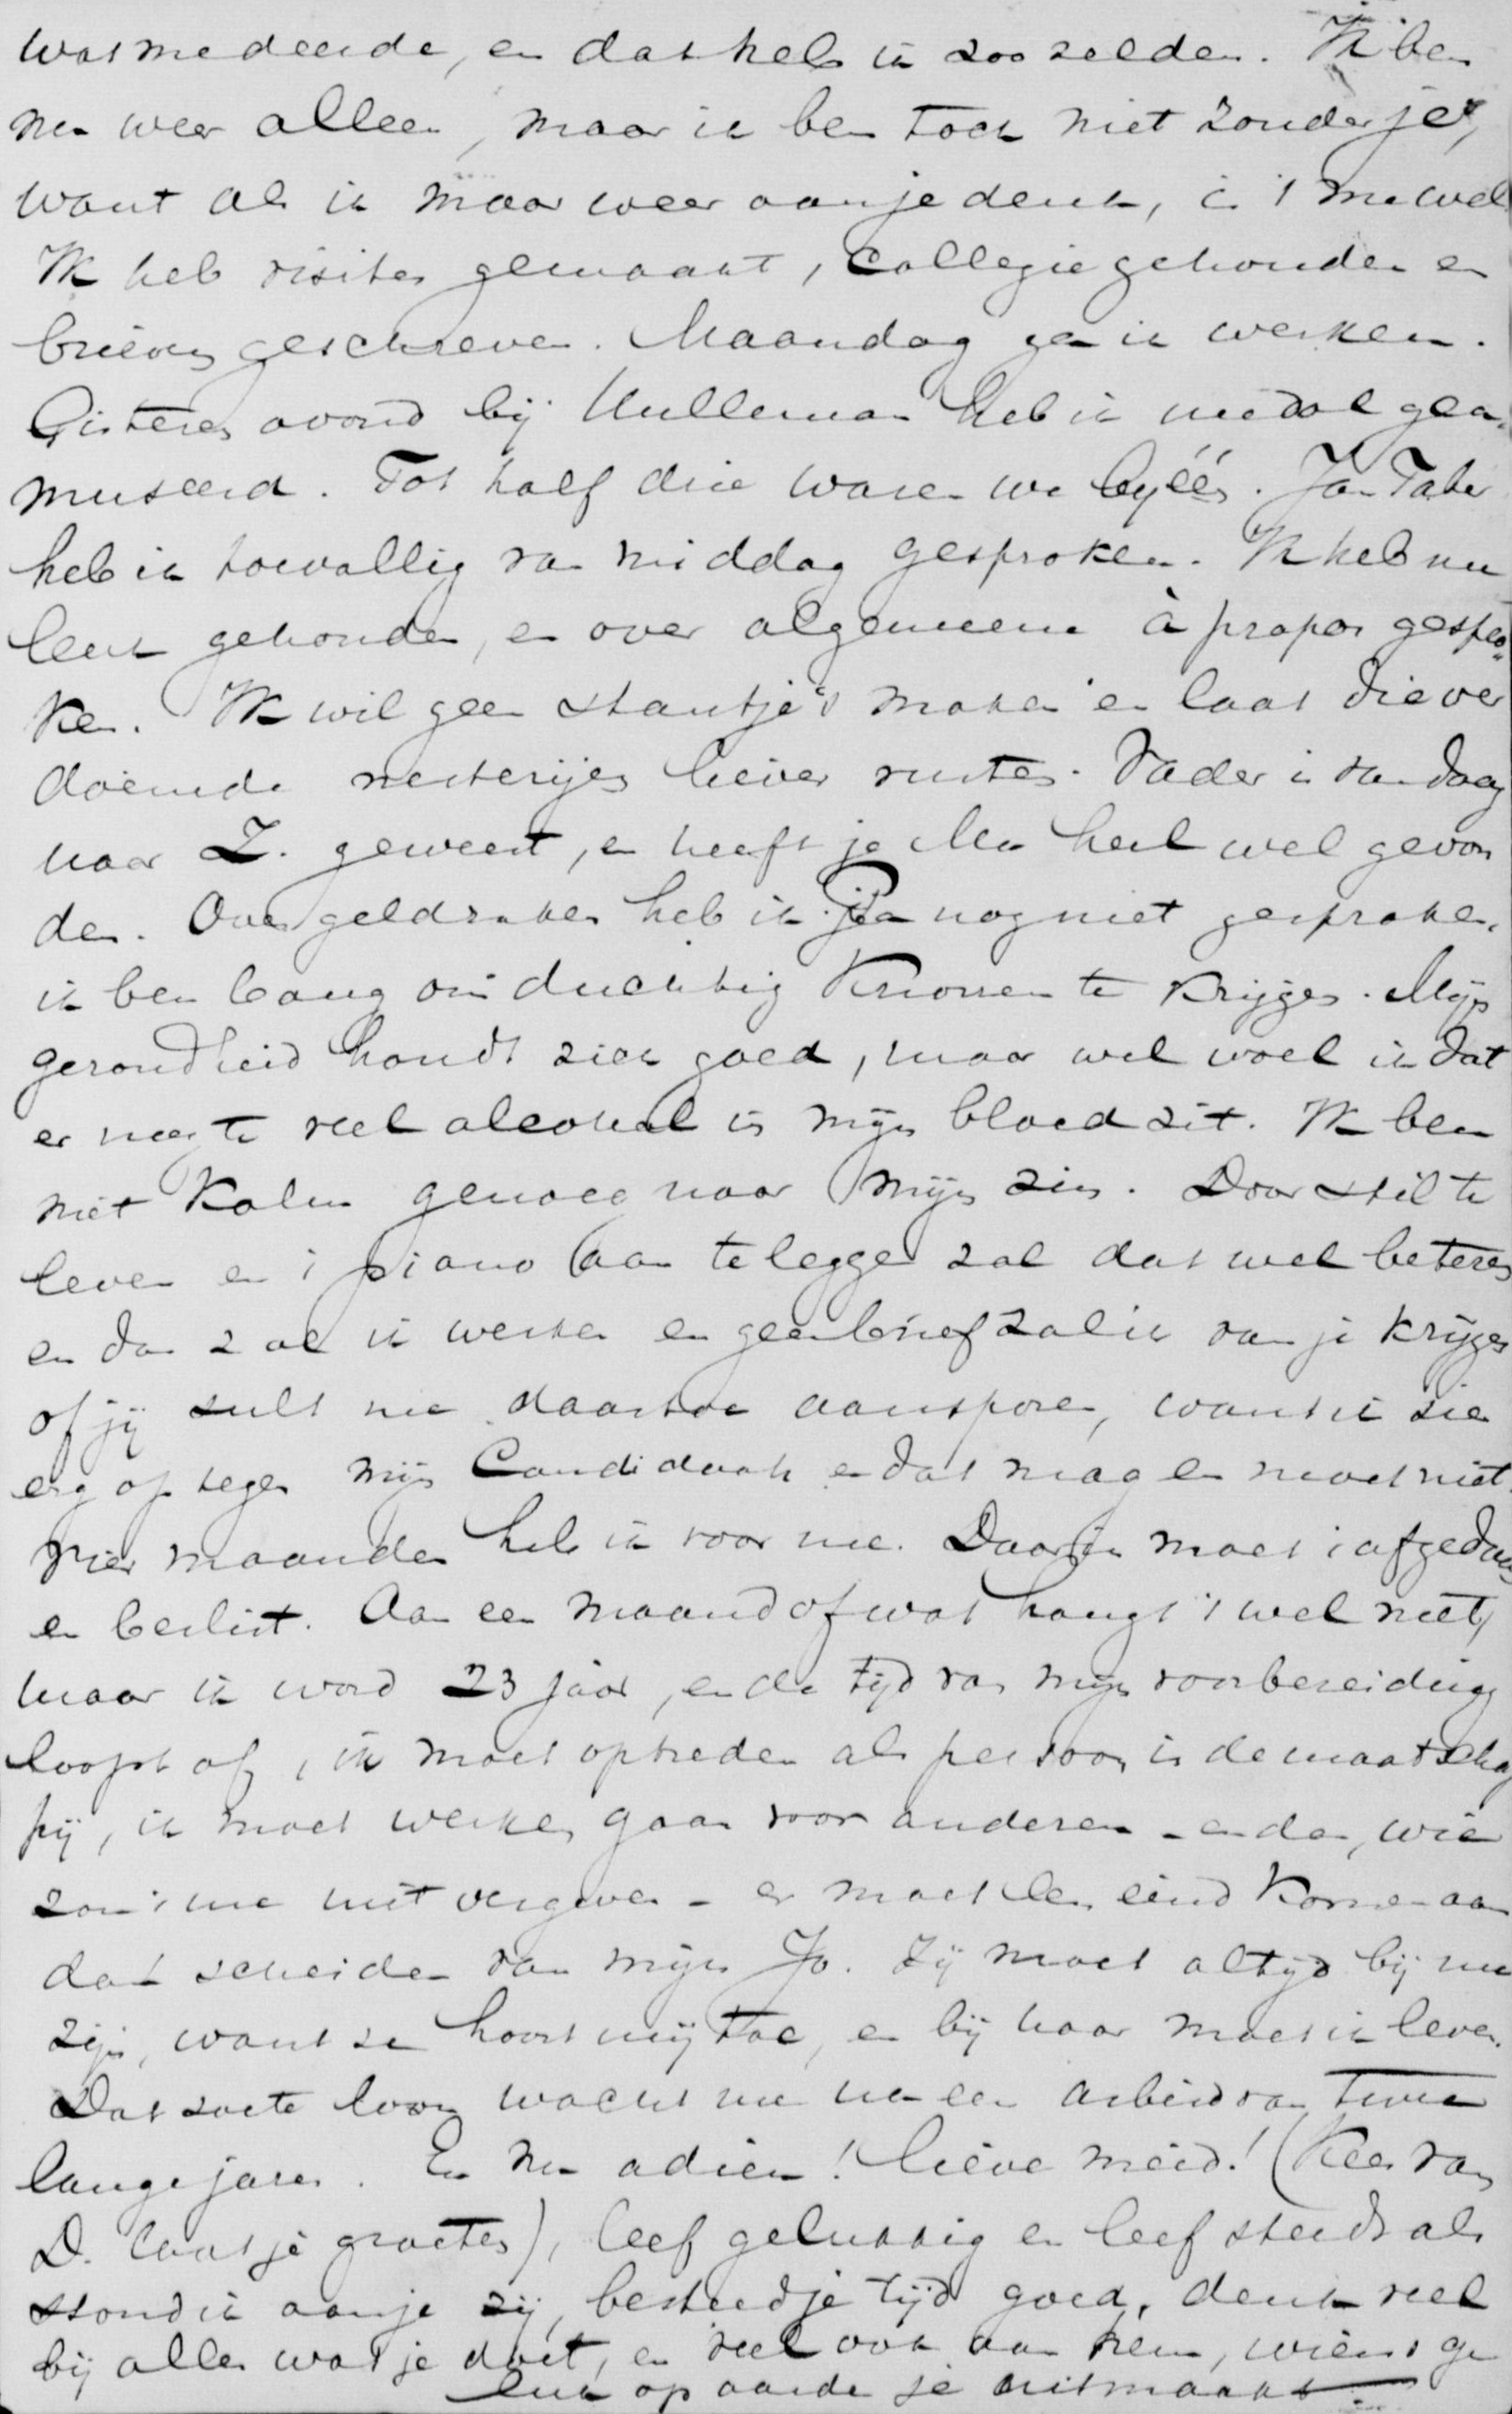 wat me deerde, en dat heb ik zoo zelden. Ik ben
nu weer alleen, maar ik ben toch niet zonder je,
want als ik maar weer aan je denk, is 't me wel
Ik heb visites gemaakt, collegie gehouden en
brieven geschreven. Maandag ga ik werken.
Gisteren avond bij Hulleman heb ik me dol gea-
museerd. Tot half drie waren we bijéén. Jan Taber
heb ik toevallig van middag gesproken. Ik heb me
leuk gehouden, en over algemeene à propos gespro-
ken. Ik wil geen standje's maken en laat die ver
doemde nesterijen liever rusten. Vader is van daag
naar Z. geweest, en heeft je Ma heel wel gevon
den. Over geldzaken heb ik Pa nog niet gesproken,
ik ben bang om duchtig knorren te krijgen. Mijn
gezondheid houdt zich goed, maar wel voel ik dat
er nog te veel alcohol in mijn bloed zit. Ik ben
niet kalm genoeg naar mijn zin. Door stil te
leven en 't piano aan te leggen zal dat wel beteren
en dan zal ik werken en geen brief zal ik van je krijgen
of jij zult me daartoe aansporen, want ik zie
erg op tegen mijn Candidaats en dat mag en moet niet.
Vier maanden heb ik voor me. Daarin moet 't afgedaan
en beslist. Aan een maand of wat hangt 't wel niet,
maar ik word 23 jaar, en de tijd van mijn voorbereiding
loopt af, ik moet optreden als persoon in de maatschap
pij, ik moet werken gaan voor anderen - en dan, wie
zou 't me niet vergeven - er moet een eind komen aan
dat scheiden van mijn Jo. Zij moet altijd bij me
zijn, want ze hoort mij toe, en bij haar moet ik leven.
Dat zoete loon wacht me na een arbeid van twee
lange jaren. En nu adieu! lieve meid! (Kees van
D. laat je groeten), leef gelukkig en leef steeds als
stond ik aan je zij, besteed je tijd goed, denk veel
bij alles wat je doet, en veel ook aan hem, wiens ge
luk op aarde je uitmaakt